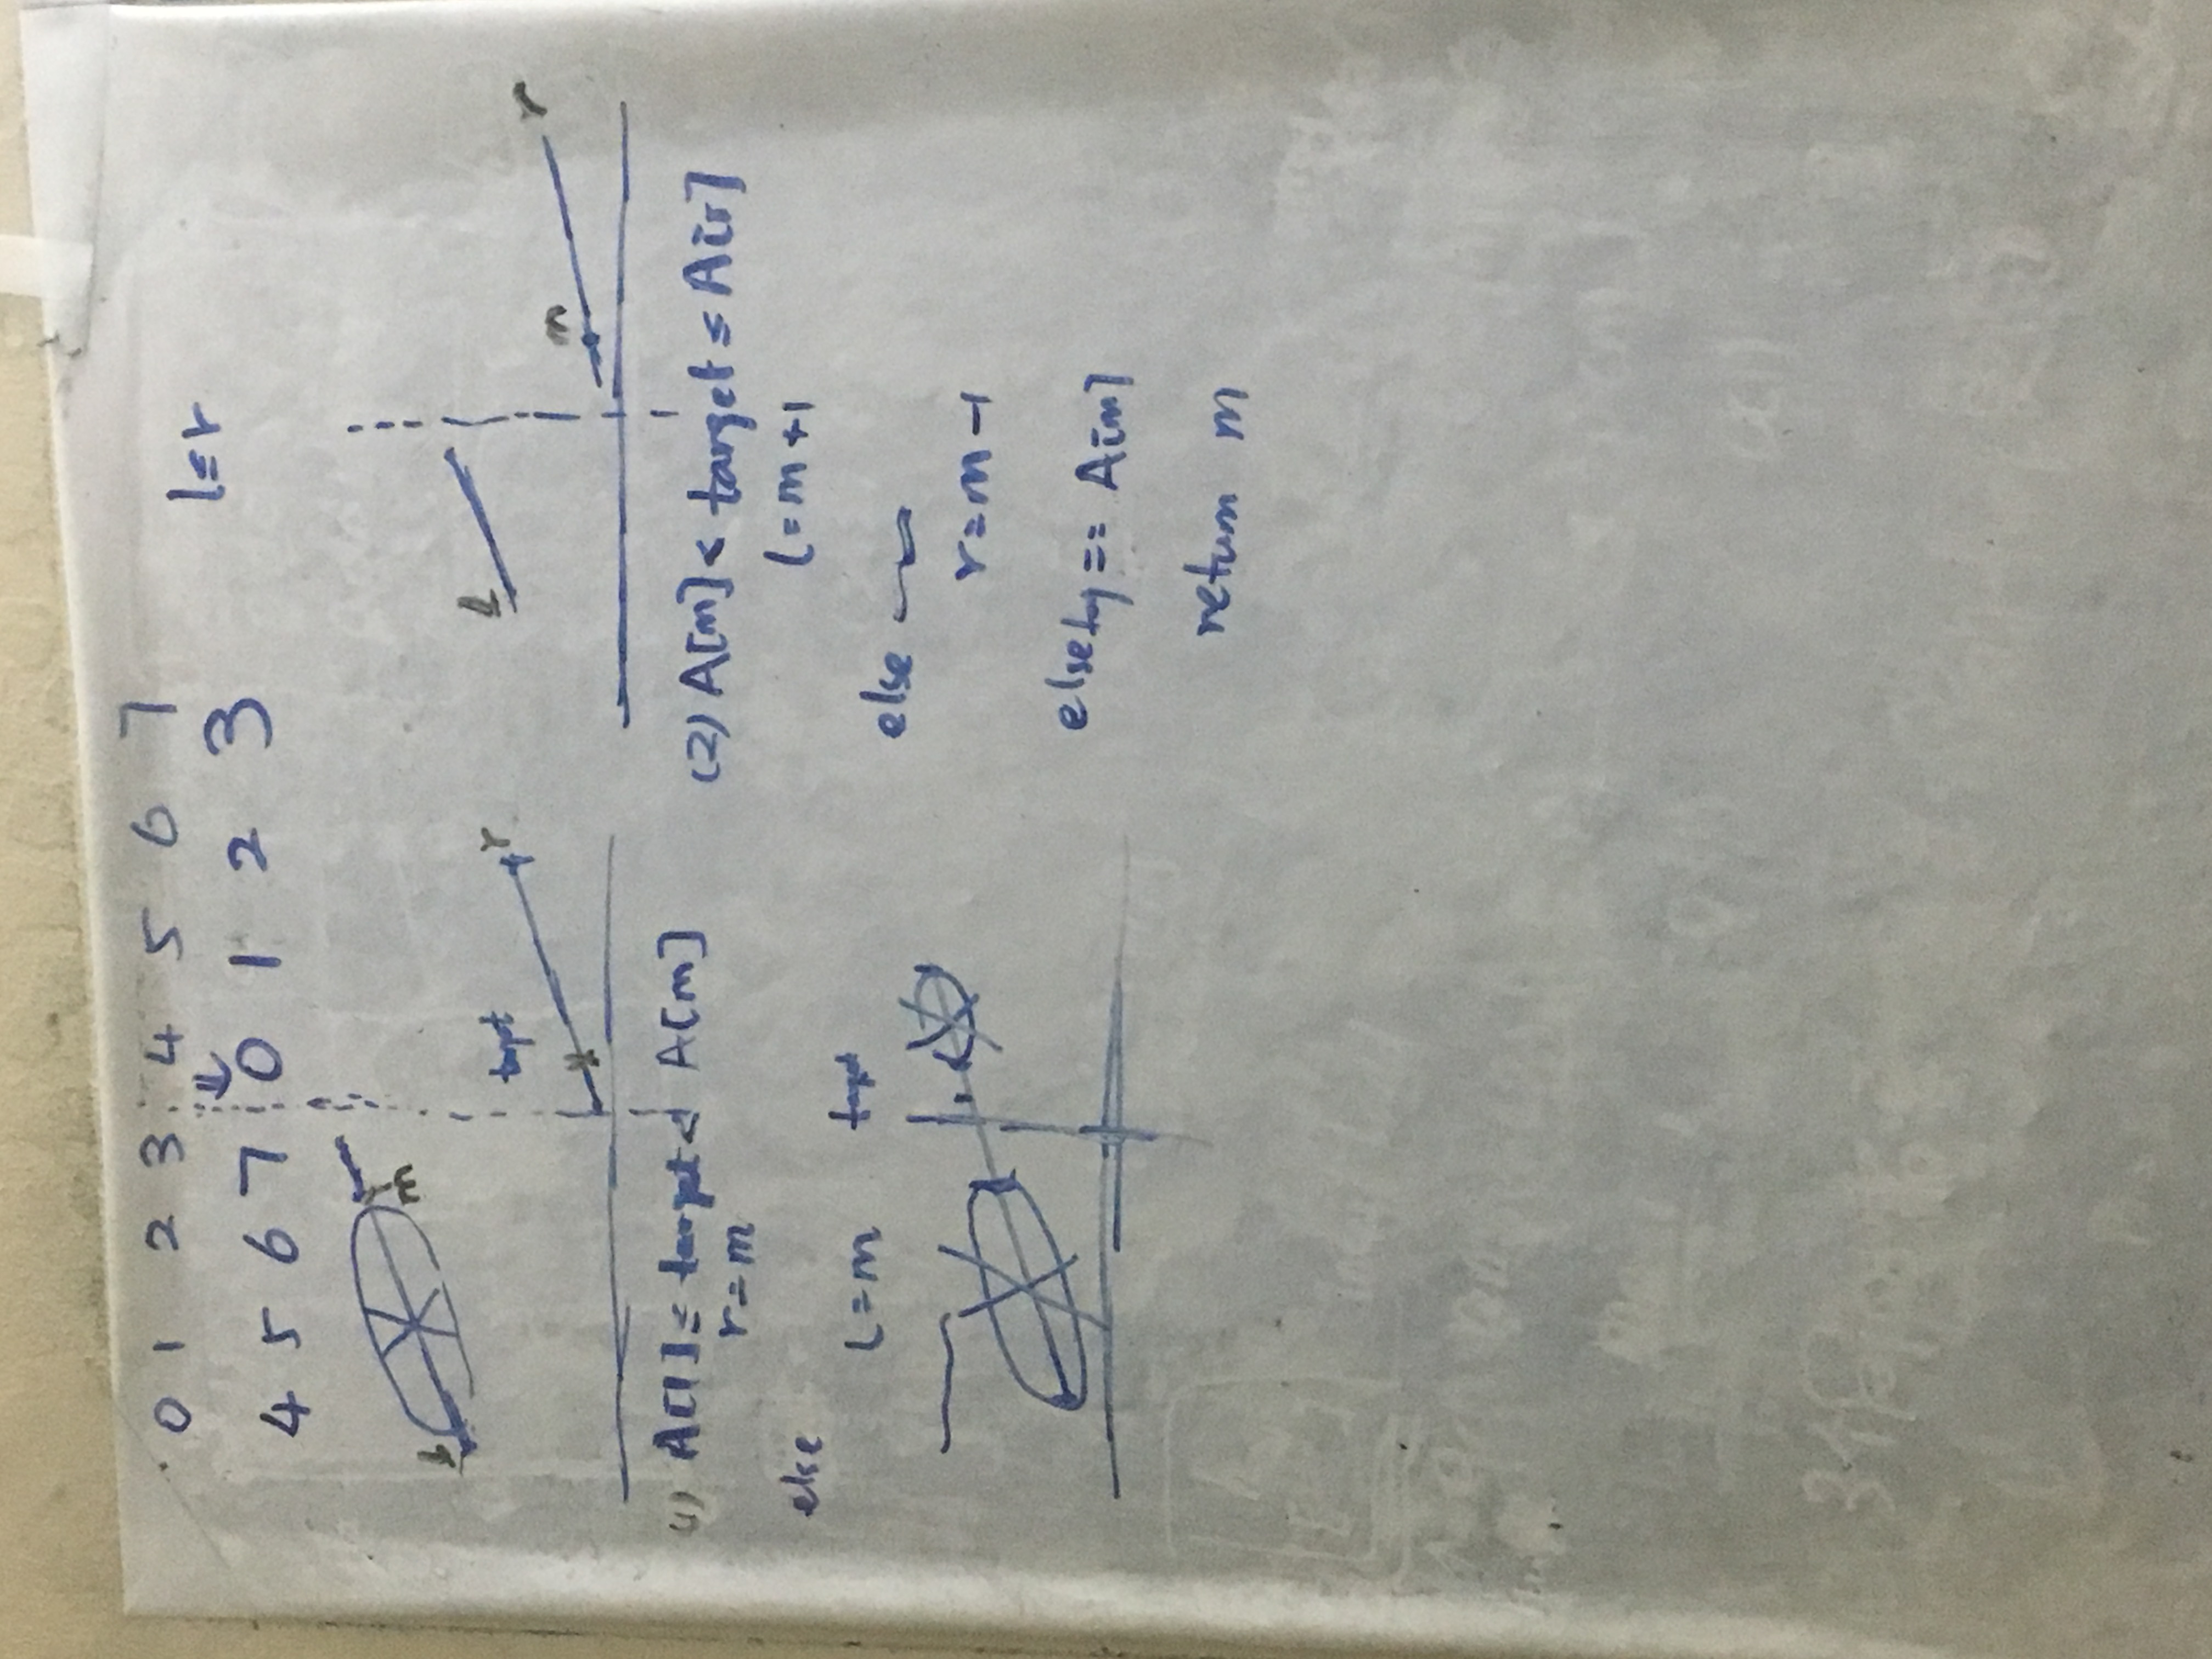 0 1 2 3 4 5 6 7
4 5 6 7 0 1 2 3
l ≤ r
l
m
target
r
l
m
r
(1) A[l] ≤ target < A[m]
r = m
else
l = m
target
(2) A[m] < target ≤ A[r]
l = m + 1
else
r = m - 1
else == A[m]
return m